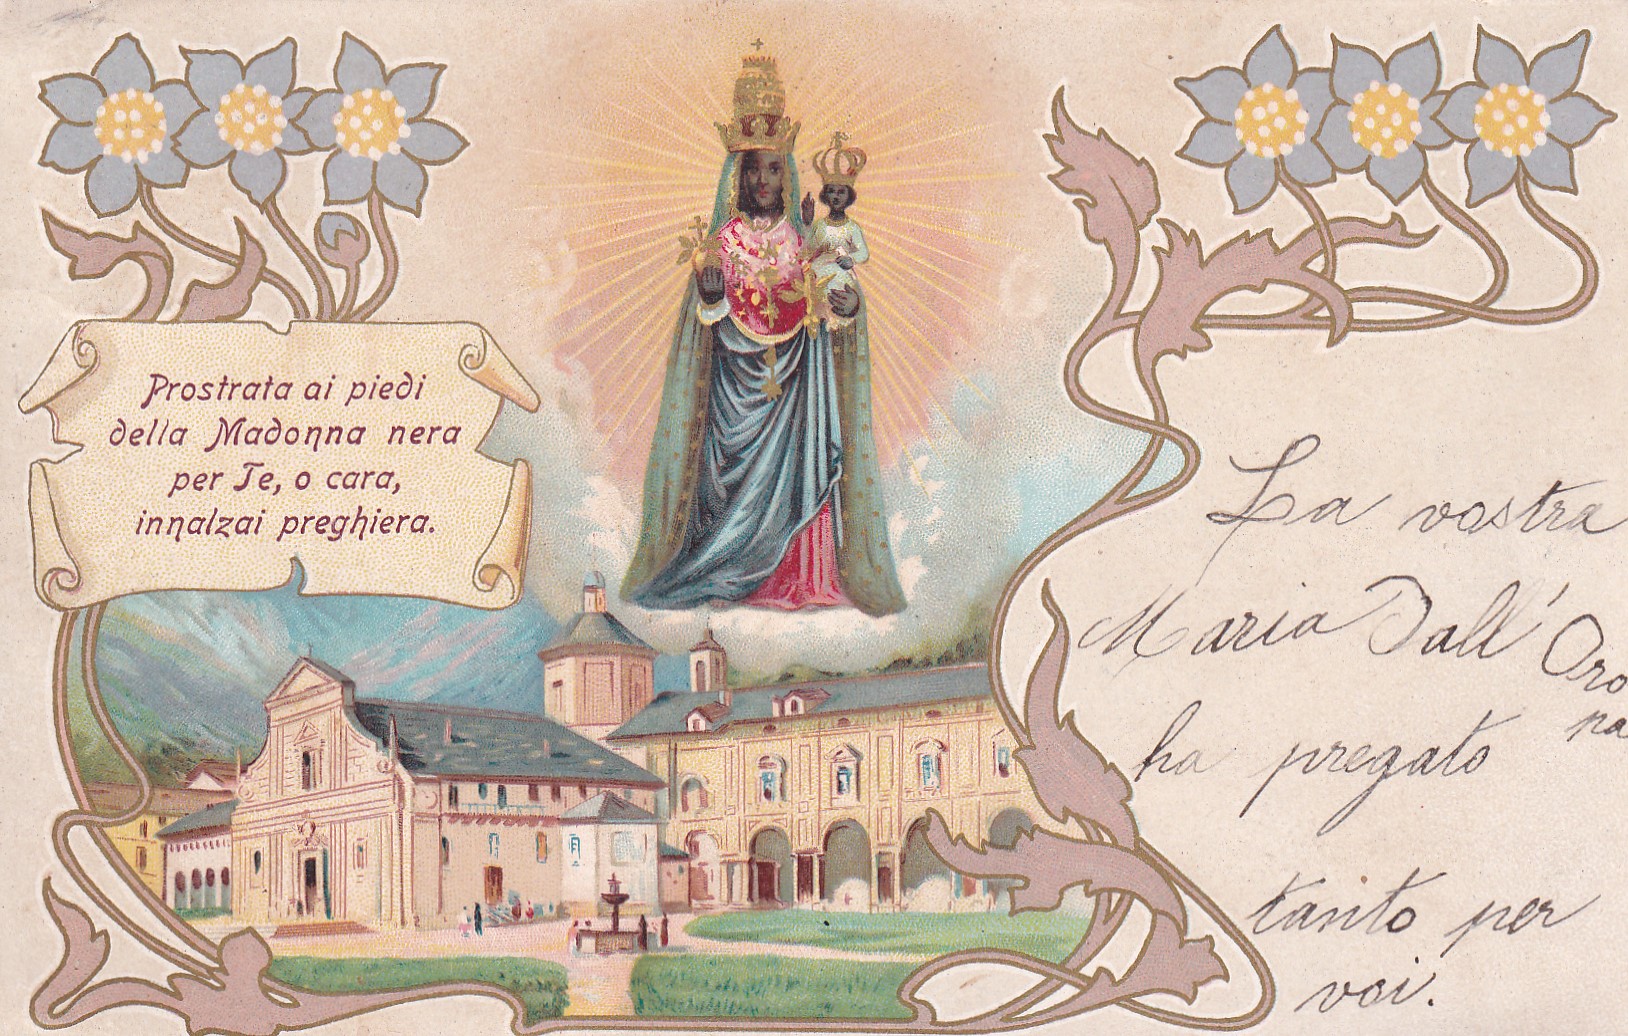 Prostrata ai piedi
della Madonna nera
per Te, o cara,
innalzai preghiera.
La vostra
Maria Dall' Oro
pa
ha pregato
tanto per
voi.